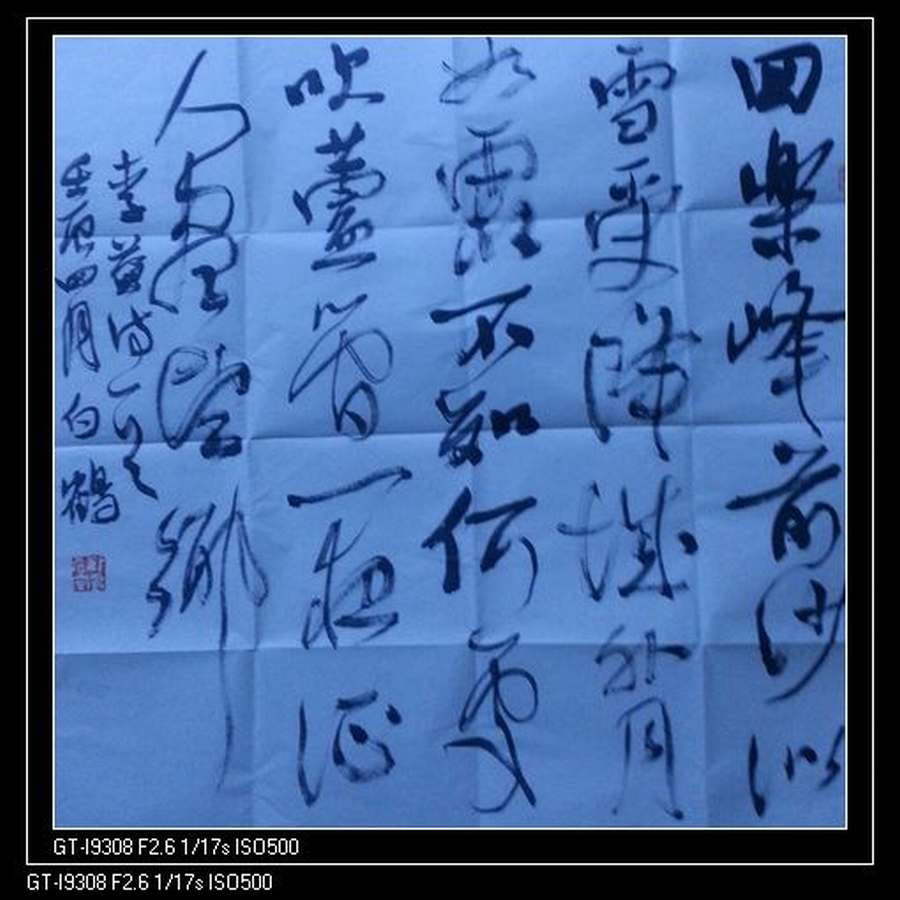 回樂峰前沙似
雪受降城外月
如霜不知何處
吹蘆管一夜征
人盡望鄉
李益诗一首
壬辰四月白鶴
GT-I9308 F2.6 1/17s ISO500
GT-I9308 F2.6 1/17s ISO500